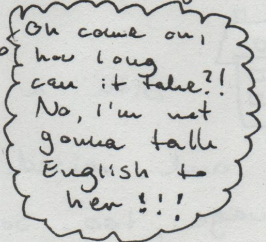 Oh come on,
how long
can it take?!
No, I'm not
gonna talk
English to
her !!!